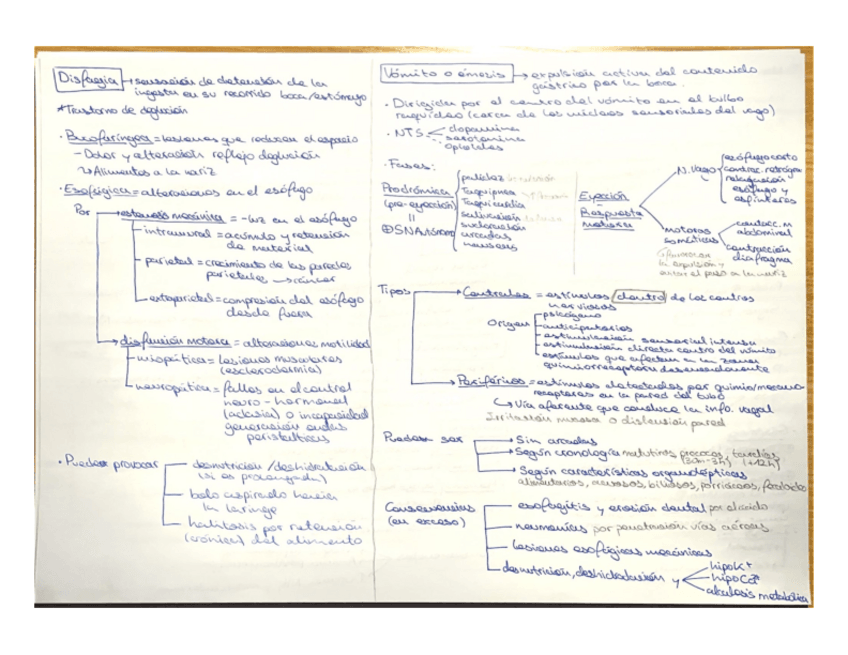 Disfagia → sensación de detención de la
ingesta en su recorrido boca/estómago
*Trastorno de deglución
· Bucofaríngea = lesiones que reducen el espacio
- Dolor y alteración reflejo deglución
↳ Alimentos a la nariz
· Esofágica = alteraciones en el esófago
Por
estenosis mecánica = luz en el esófago
intramural = acúmulo y retención
de material
parietal = crecimiento de las paredes
parietales → cáncer
extraparietal = compresión del esófago
desde fuera
disfunción motora = alteraciones motilidad
miopática = lesiones musculares
(esclerodermia)
neuropática = fallos en el control
neuro-hormonal
(aclasia) o incapacidad
generación ondas
peristálticas
· Pueden provocar
desnutrición /deshidratación
(si es prolongada)
bolo aspirado hacia
la laringe
halitosis por retención
(crónica) del alimento
Vómito o émesis → expulsión activa del contenido
gástrico por la boca.
· Dirigida por el centro del vómito en el bulbo
raquídeo (cerca de los núcleos sensoriales del vago)
· NTS
dopamina
serotonina
opioides
· Fases:
Prodrómica
(pre-eyección)
=
⊕SNAutónomo
palidez
Taquipnea
Taquicardia
salivación
sudoración
arcadas
nauseas
Eyección
Respuesta
motora
N. Vago
esófago corto
contrac. retrógra
relajación
esófago y
esfínteres
motoras
somáticas
contracc. m
abdominal
contracción
diafragma
la expulsión y
evitar el paso a la nariz
Tipos
Centrales = estímulos dentro de los centros
nerviosos
Origen
psicógeno
anticipatorios
estimulación sensorial intensa
estimulación directa centro del vómito
estímulos que afectan a la zona
quimiorreceptora desencadenante
Periféricos = estímulos detectados por quimio/mecano-
receptores en la pared del tubo
↳ Vía aferente que conduce la info. vagal
Irritación mucosa o distensión pared
Pueden ser
→ Sin arcadas
→ Según cronología matutinos, precoces, tardíos
(30m-3h) (+12h)
→ Según características organolépticas
alimentarios, acuosos, biliosos, porráceos, fecaloides
Consecuencias
(en exceso)
esofagitis y erosión dental por ácido
neumonías por penetración vías aéreas
lesiones esofágicas mecánicas
desnutrición, deshidratación y
hipoK+
hipoCa
alcalosis metabólica